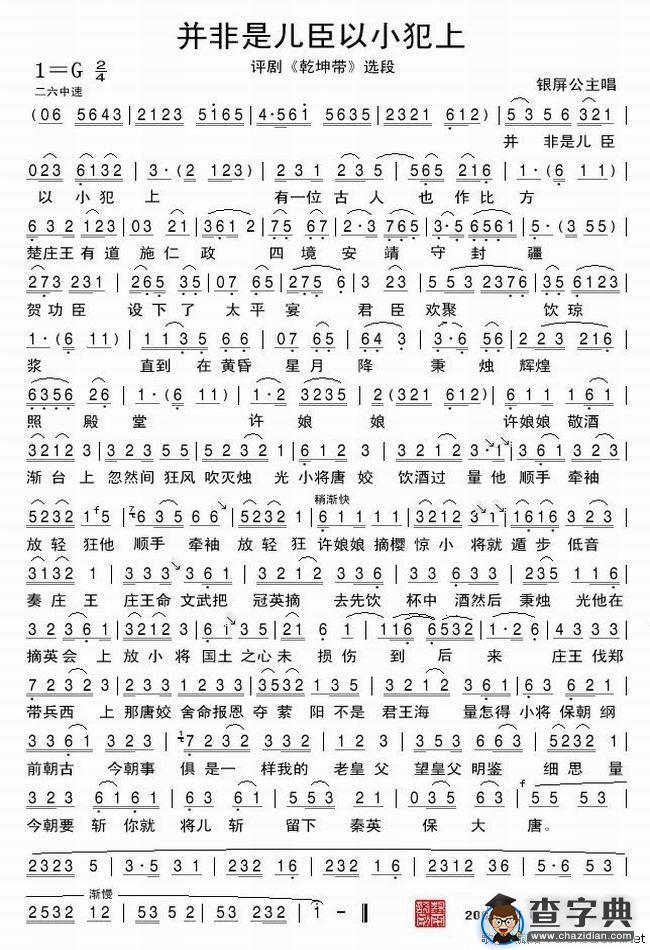 并非是儿臣以小犯上
1=G 2/4
评剧《乾坤带》选段
二六中速
银屏公主唱
(06 5643 | 2123 5165 | 4·561 5635 | 2321 612) | 5 3 5 6 321 |
并 非是儿 臣
023 6132 | 3·(2 123) | 2 3 1 2 3 5 | 65 216 | 1·(6 11) |
以 小 犯 上 有一位 古 人 也 作 比 方
6 3 2 123 | 03 21 | 3 6 1 2 | 75 67 | 2·765 | 3·5 6561 | 5·(3 55) |
楚庄王有道 施仁 政 四境 安 靖 守 封 疆
273 231 | 265 35 | 07 65 | 275 6 | 3 23 | 553 2376 | 35 6123 |
贺功臣 设下了 太平 宴 君臣 欢聚 饮琼
1·(6 11) | 1 1 3 5 6 6 | 07 65 | 64 3 | 3·6 56 |
浆 直到 在黄昏 星月 降 秉 烛 辉煌
6356 26 | 1·(6 11) | 1·2 3235 | 2(321 612) | 6 3 2 1 2 |
照 殿 堂 许 娘 娘 许娘娘 敬酒
3212 3 | 3 2 3 5 5 | 5 2 3 2 | 6 1 2 3 | 3212 3 5 5 | 3 2 3 2 |
渐台上 忽然间 狂风 吹灭烛 光小将唐 姣 饮酒过 量他 顺手 牵袖
稍渐快
5232 15 | 6 3 5 6 6 | 5232 1 | 6 1 1 1 1 | 3212 3 1 1 | 1616 3 2 |
放轻 狂他 顺手 牵袖 放轻 狂 许娘娘 摘樱 惊小 将就 遁步 低音
3132 1 | 1 2 3 3 3 | 3 6 1 | 3 2 3 1 | 6 1 2 3 | 235 1 1 6 |
奏庄 王 庄王命 文武把 冠英摘 去先饮 杯中 酒然后 秉烛 光他在
3 2 3 6 1 | 3212 3 | 6 1 3 5 | 21 6 1 | 116 6532 | 1·2 6 | 0 1 3 2 |
摘英会 上 放小 将 国土 之心未 损 伤 到 后 来 庄王 伐郑
7 2 3 2 3 | 2 3 1 2 3 3 | 3 2 3 3 | 3532 1 | 3 3 2 1 2 | 3 6 1 | 3 2 3 2 |
带兵西 上 那唐姣 舍命报恩 夺荥 阳不是 君王海 量怎得 小将 保朝 纲
3 3 6 1 3 2 2 3 | 7 2 3 2 | 1 3 2 3 5 5 | 3 2 1 2 3 | 6 2 3 | 5232 1 |
前朝古 今朝事 俱是一 样我的 老皇 父 望皇父 明鉴 细思 量
323 2 | 6161 | 6 3 6 | 1·2 | 035 | 6 1 | 5
今朝要 斩 你就 将儿 斩 留下 秦英 保 大 唐。
2323 5 | 3·5 31 | 2 3 2 16 | 2·3 16 | 2312 3235 | 2·3 16 |
渐慢
2532 12 | 53 52 | 53 232 | 1 - ‖
查字典
www.chazidian.com